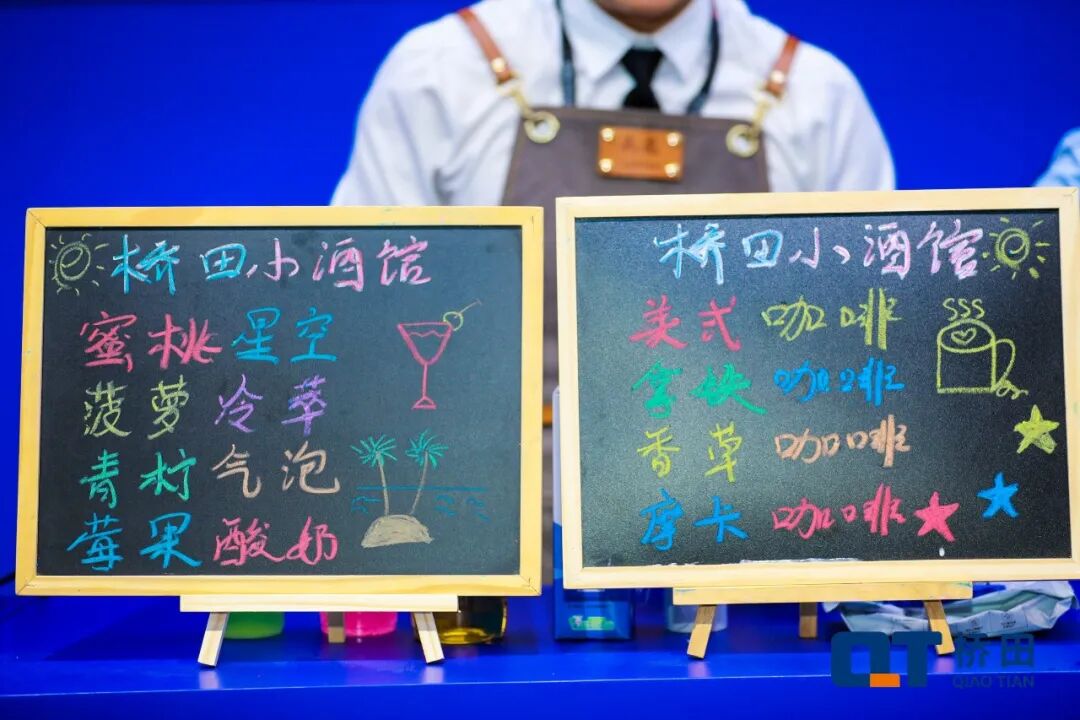 桥田小酒馆
蜜桃星空
菠萝冷萃
青柠气泡
莓果酸奶
桥田小酒馆
美式咖啡
拿铁咖啡
香草咖啡
摩卡咖啡
QT 桥田
QIAO TIAN